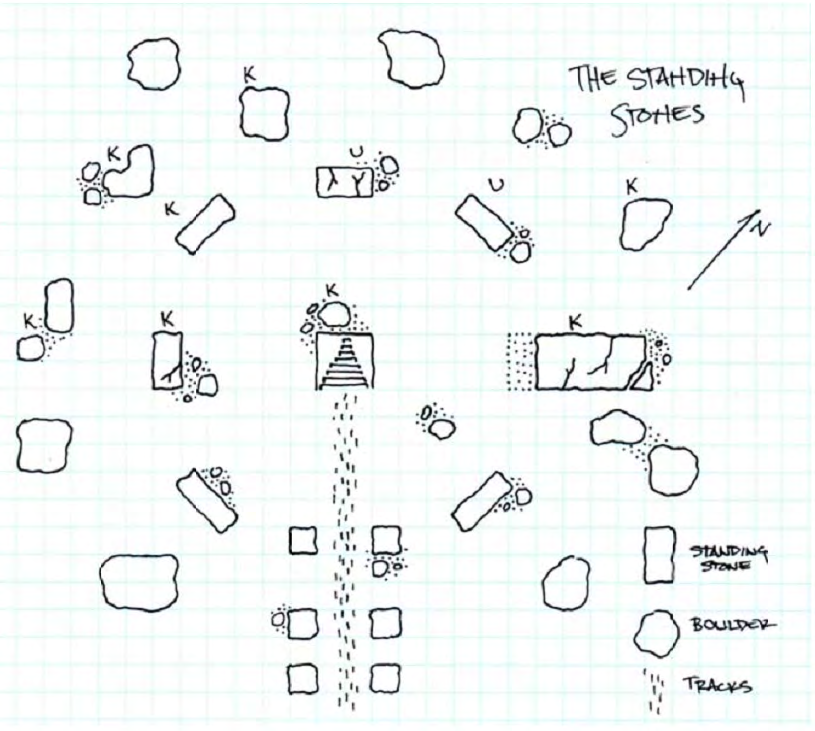 K
THE STANDING
STONES
K
U
K
U
K
K
N
K
K
K
K
STANDING
STONE
BOULDER
TRACKS